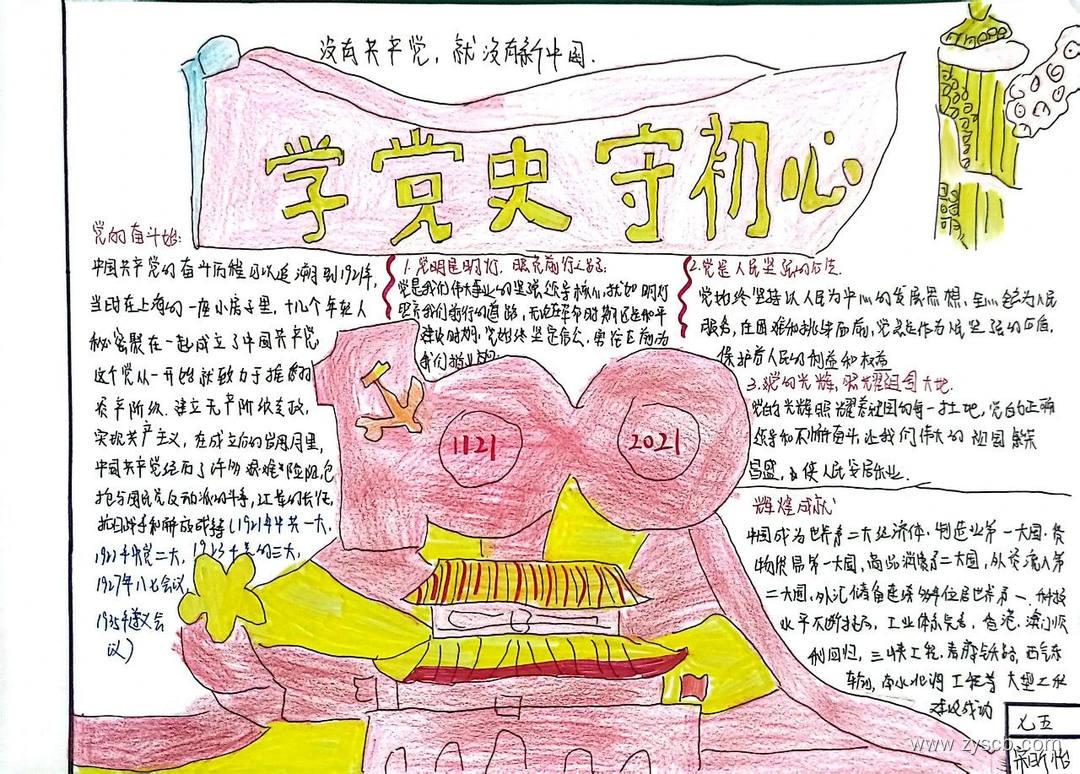 没有共产党，就没有新中国.
学党史守初心
党的奋斗史:
中国共产党的奋斗历程可以追溯到1921年,
当时在上海的一座小房子里，十几个年轻人
秘密聚在一起成立了中国共产党
这个党从一开始就致力于推翻
资产阶级、建立无产阶级
实现共产主义，在成立后的岁月里,
中国共产党经历了许多艰难
抗日战争和解放战争(1921年中共一大,
1927年八七会议
1935年遵义会
议)
1.党明是明灯，照亮前行之路:
党是我们伟大事业的坚强领导核心,犹如明灯
照亮我们前行的道路，无论在革命时期还是和平
建设时期，党始终坚定信心，勇
我们指
2.党是人民坚强的后盾.
党始终坚持以人民为中心的发展思想，全心全意为人民
服务，在困难和挑战面前，党总是作为人民坚强的后盾,
保护着人民的利益和权益
3.党的光辉，照耀祖国大地.
党的光辉照耀着祖国的每一寸土地，党的正确
领导和不断奋斗让我们伟大的祖国繁荣
昌盛，使人民安居乐业.
1121
2021
辉煌成就
中国成为世界第二大经济体、制造业第一大国、货
物贸易第一大国，商品消费第二大国，外资流入第
二大国，外汇储备连续多年位居世界第一、科技
水平不断提高，工业体系完善，香港、澳门顺
利回归，三峡工程、青藏铁路，西气东
输，南水北调工程等大型工程
建设成功
七五
www.zysco.com